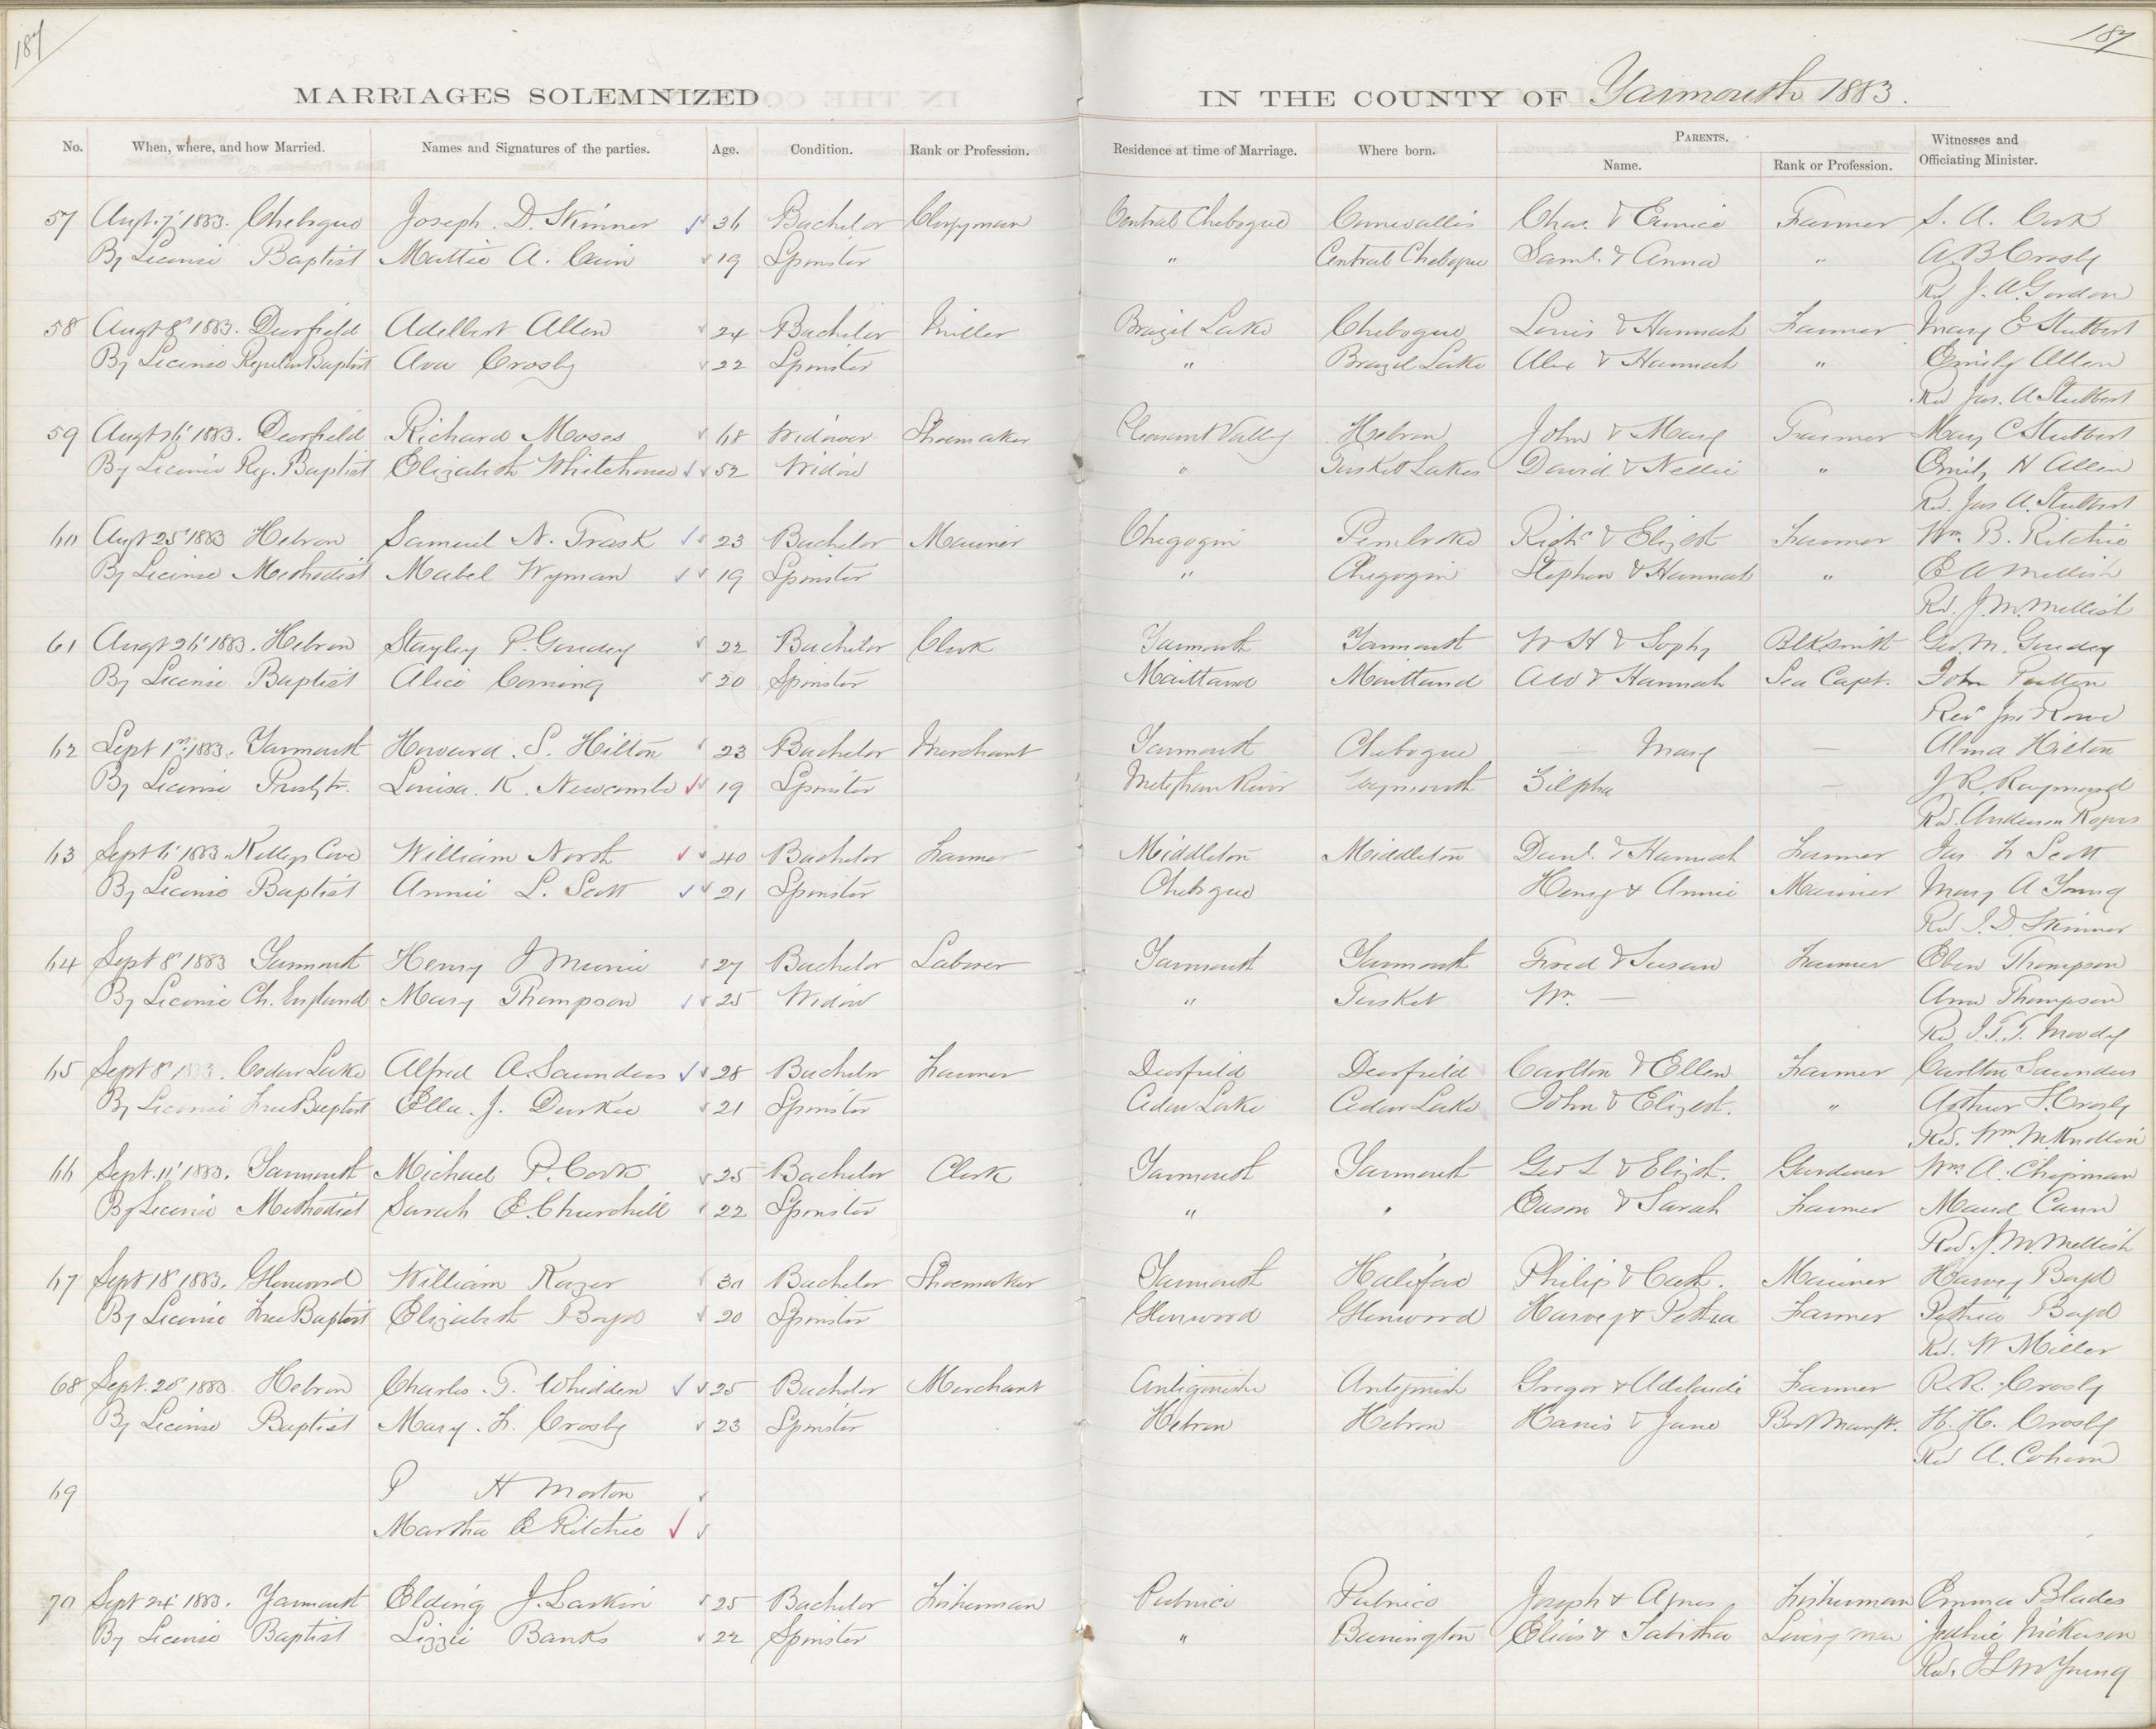 187
187
MARRIAGES SOLEMNIZED IN THE COUNTY OF Yarmouth 1883.
No. When, where, and how Married. Names and Signatures of the parties. Age. Condition. Rank or Profession. Residence at time of Marriage. Where born. PARENTS. Name. Rank or Profession. Witnesses and Officiating Minister.
57 Augt. 7' 1883. Chebogue Joseph. D. Skinner 36 Bachelor Clergyman Central Chebogue Cornwallis Chas. & Eunice Farmer S. A. Cook
By License Baptist Mattie A. Cain 19 Spinster " Central Chebogue Saml. & Anna " A. B Crosby
Rd J. A. Gordon
58 Augt 8' 1883. Deerfield Adelbert Allen 24 Bachelor Miller Brazil Lake Chebogue Louis & Hannah Farmer Mary E Stubbert
By License Regular Baptist Ava Crosby 22 Spinster " Brazil Lake Alex & Hannah " Emily Allen
Rd Jas. A Stubbert
59 Augt 16' 1883. Deerfield Richard Moses 68 Widower Shoemaker Pleasant Valley Hebron John & Mary Farmer Mary C Stubbert
By License Reg. Baptist Elizabeth Whitehouse 52 Widow " Tusket Lakes David & Nellie " Emily H Allen
Rd. Jas A. Stubbert
60 Augt 25' 1883 Hebron Samuel N. Trask 23 Bachelor Mariner Chegogin Pembroke Richd & Elizabt Farmer Wm. B. Ritchie
By License Methodist Mabel Wyman 19 Spinster " Chegogin Stephen & Hannah " E A Mellish
Rd. J. M. Mellish
61 Augt 26' 1883. Hebron Stayley P. Goudey 22 Bachelor Clerk Yarmouth Yarmouth W H & Sophy Blksmith Geo. M. Goudey
By License Baptist Alice Corning 20 Spinster Maitland Maitland A W & Hannah Sea Capt. John Patten
Revd Jno Rowe
62 Sept 1st 1883. Yarmouth Howard. S. Hilton 23 Bachelor Merchant Yarmouth Chebogue — Mary — Alma Hilton
By License Presbytr. Louisa. K. Newcombe 19 Spinster Meteghan River Weymouth Zilpha — J. R. Raymond
Rd. Anderson Rogers
63 Sept 6' 1883. Kellys Cove William North 40 Bachelor Farmer Middleton Middleton Danl. & Hannah Farmer Jas. F. Scott
By License Baptist Annie L. Scott 21 Spinster Chebogue Henry & Annie Mariner Mary A Young
Rd J. D. Skinner
64 Sept 8' 1883 Yarmouth Henry J Munie 27 Bachelor Laborer Yarmouth Yarmouth Fred & Susan Farmer Eben Thompson
By License Ch. England Mary Thompson 25 Widow " Tusket Wm. — Ann Thompson
Rd J. T. T. Moody
65 Sept 8' 1883. Cedar Lake Alfred A. Saunders 28 Bachelor Farmer Deerfield Deerfield Carlton & Ellen Farmer Carlton Saunders
By License Free Baptist Ella. J. Durkee 21 Spinster Cedar Lake Cedar Lake John & Elizabt. " Arthur S. Crosby
Rd. Wm. M Knollin
66 Sept. 11' 1883. Yarmouth Michael P. Cook 25 Bachelor Clerk Yarmouth Yarmouth Geo L & Elizbt. Gardener Wm A. Chipman
By License Methodist Sarah E. Churchill 22 Spinster " " Eason & Sarah Farmer Maud Cann
Rd. J. M. Mellish
67 Sept 18' 1883. Glenwood William Kazer 30 Bachelor Shoemaker Yarmouth Halifax Philip & Cath. Mariner Harvey Boyd
By License Free Baptist Elizabeth Boyd 20 Spinster Glenwood Glenwood Harvey & Farmer Boyd
Rd. W Miller
68 Sept. 20' 1883. Hebron Charles. T. Whidden 25 Bachelor Merchant Antigonishe Antigonish Gregor & Adelaide Farmer R. R. Crosby
By License Baptist Mary. F. Crosby 23 Spinster Hebron Hebron Harris & Jane H. H. Crosby
Rd A. Cohoon
69 P H Morton
Martha E Ritchie
70 Sept 24' 1883. Yarmouth Elding J. Larkin 25 Bachelor Fisherman Pubnico Pubnico Joseph & Agnes Fisherman Emma Blades
By License Baptist Lizzie Banks 22 Spinster " Barrington Elias & Tabitha Nickerson
Rd. Young